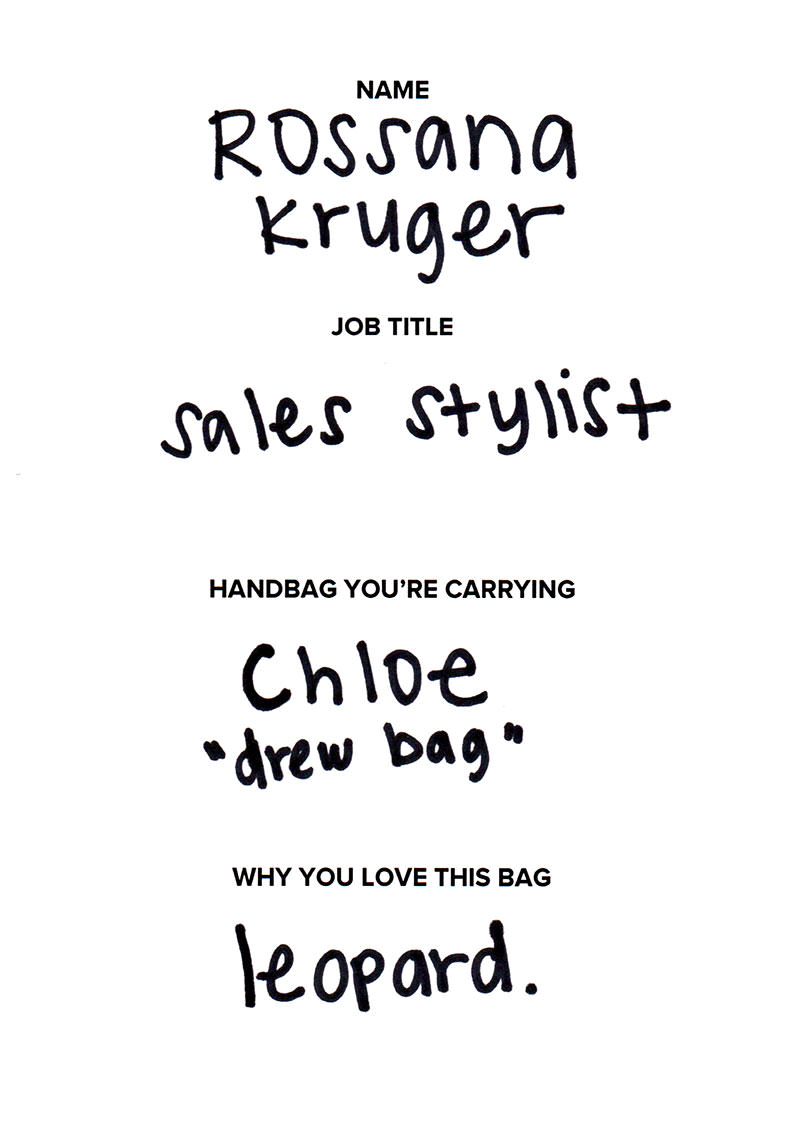 NAME
Rossana
Kruger
JOB TITLE
sales stylist
HANDBAG YOU'RE CARRYING
Chloe
"drew bag"
WHY YOU LOVE THIS BAG
leopard.